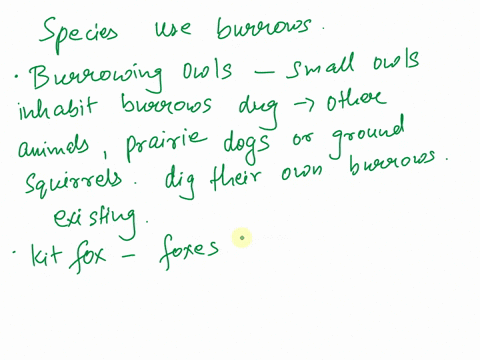 Species use burrows.
· Burrowing owls – small owls
inhabit burrows dug → other
animals, prairie dogs or ground
squirrels. dig their own burrows.
existing.
· kit fox – foxes